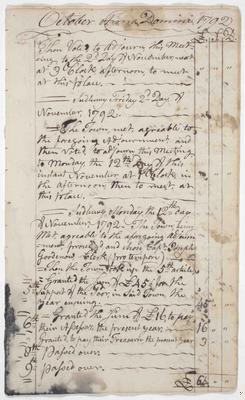 October Anno Domini 1792
Then Voted to Adjourn this Meet-
ing to the 2d Day of November next
at 3 Clock afternoon to meet
at this place.
Sudbury Friday 2d Day of
November 1792.
The Town met agreable to
the foregoing Adjournment and
then Voted to adjourn this Meeting
to Monday the 12th Day of this
instant November at Clock in
the afternoon then to meet at
this place.
Sudbury Monday the 12th day
of November 1792. The Town being
Met agreable to the aforegoing adjourn-
ment proceed and chose
Goodenow Clerk protempor
Then the Town took up the 5th article
Granted the Sum of £45 for the
Support of the Poor in said Town the
year ensuing
Granted the Sum of £16 to pay
their Assessors the present year 16
Granted to pay their Treasurer the present year 3
8th Passed over
9th Passed over
£ 64